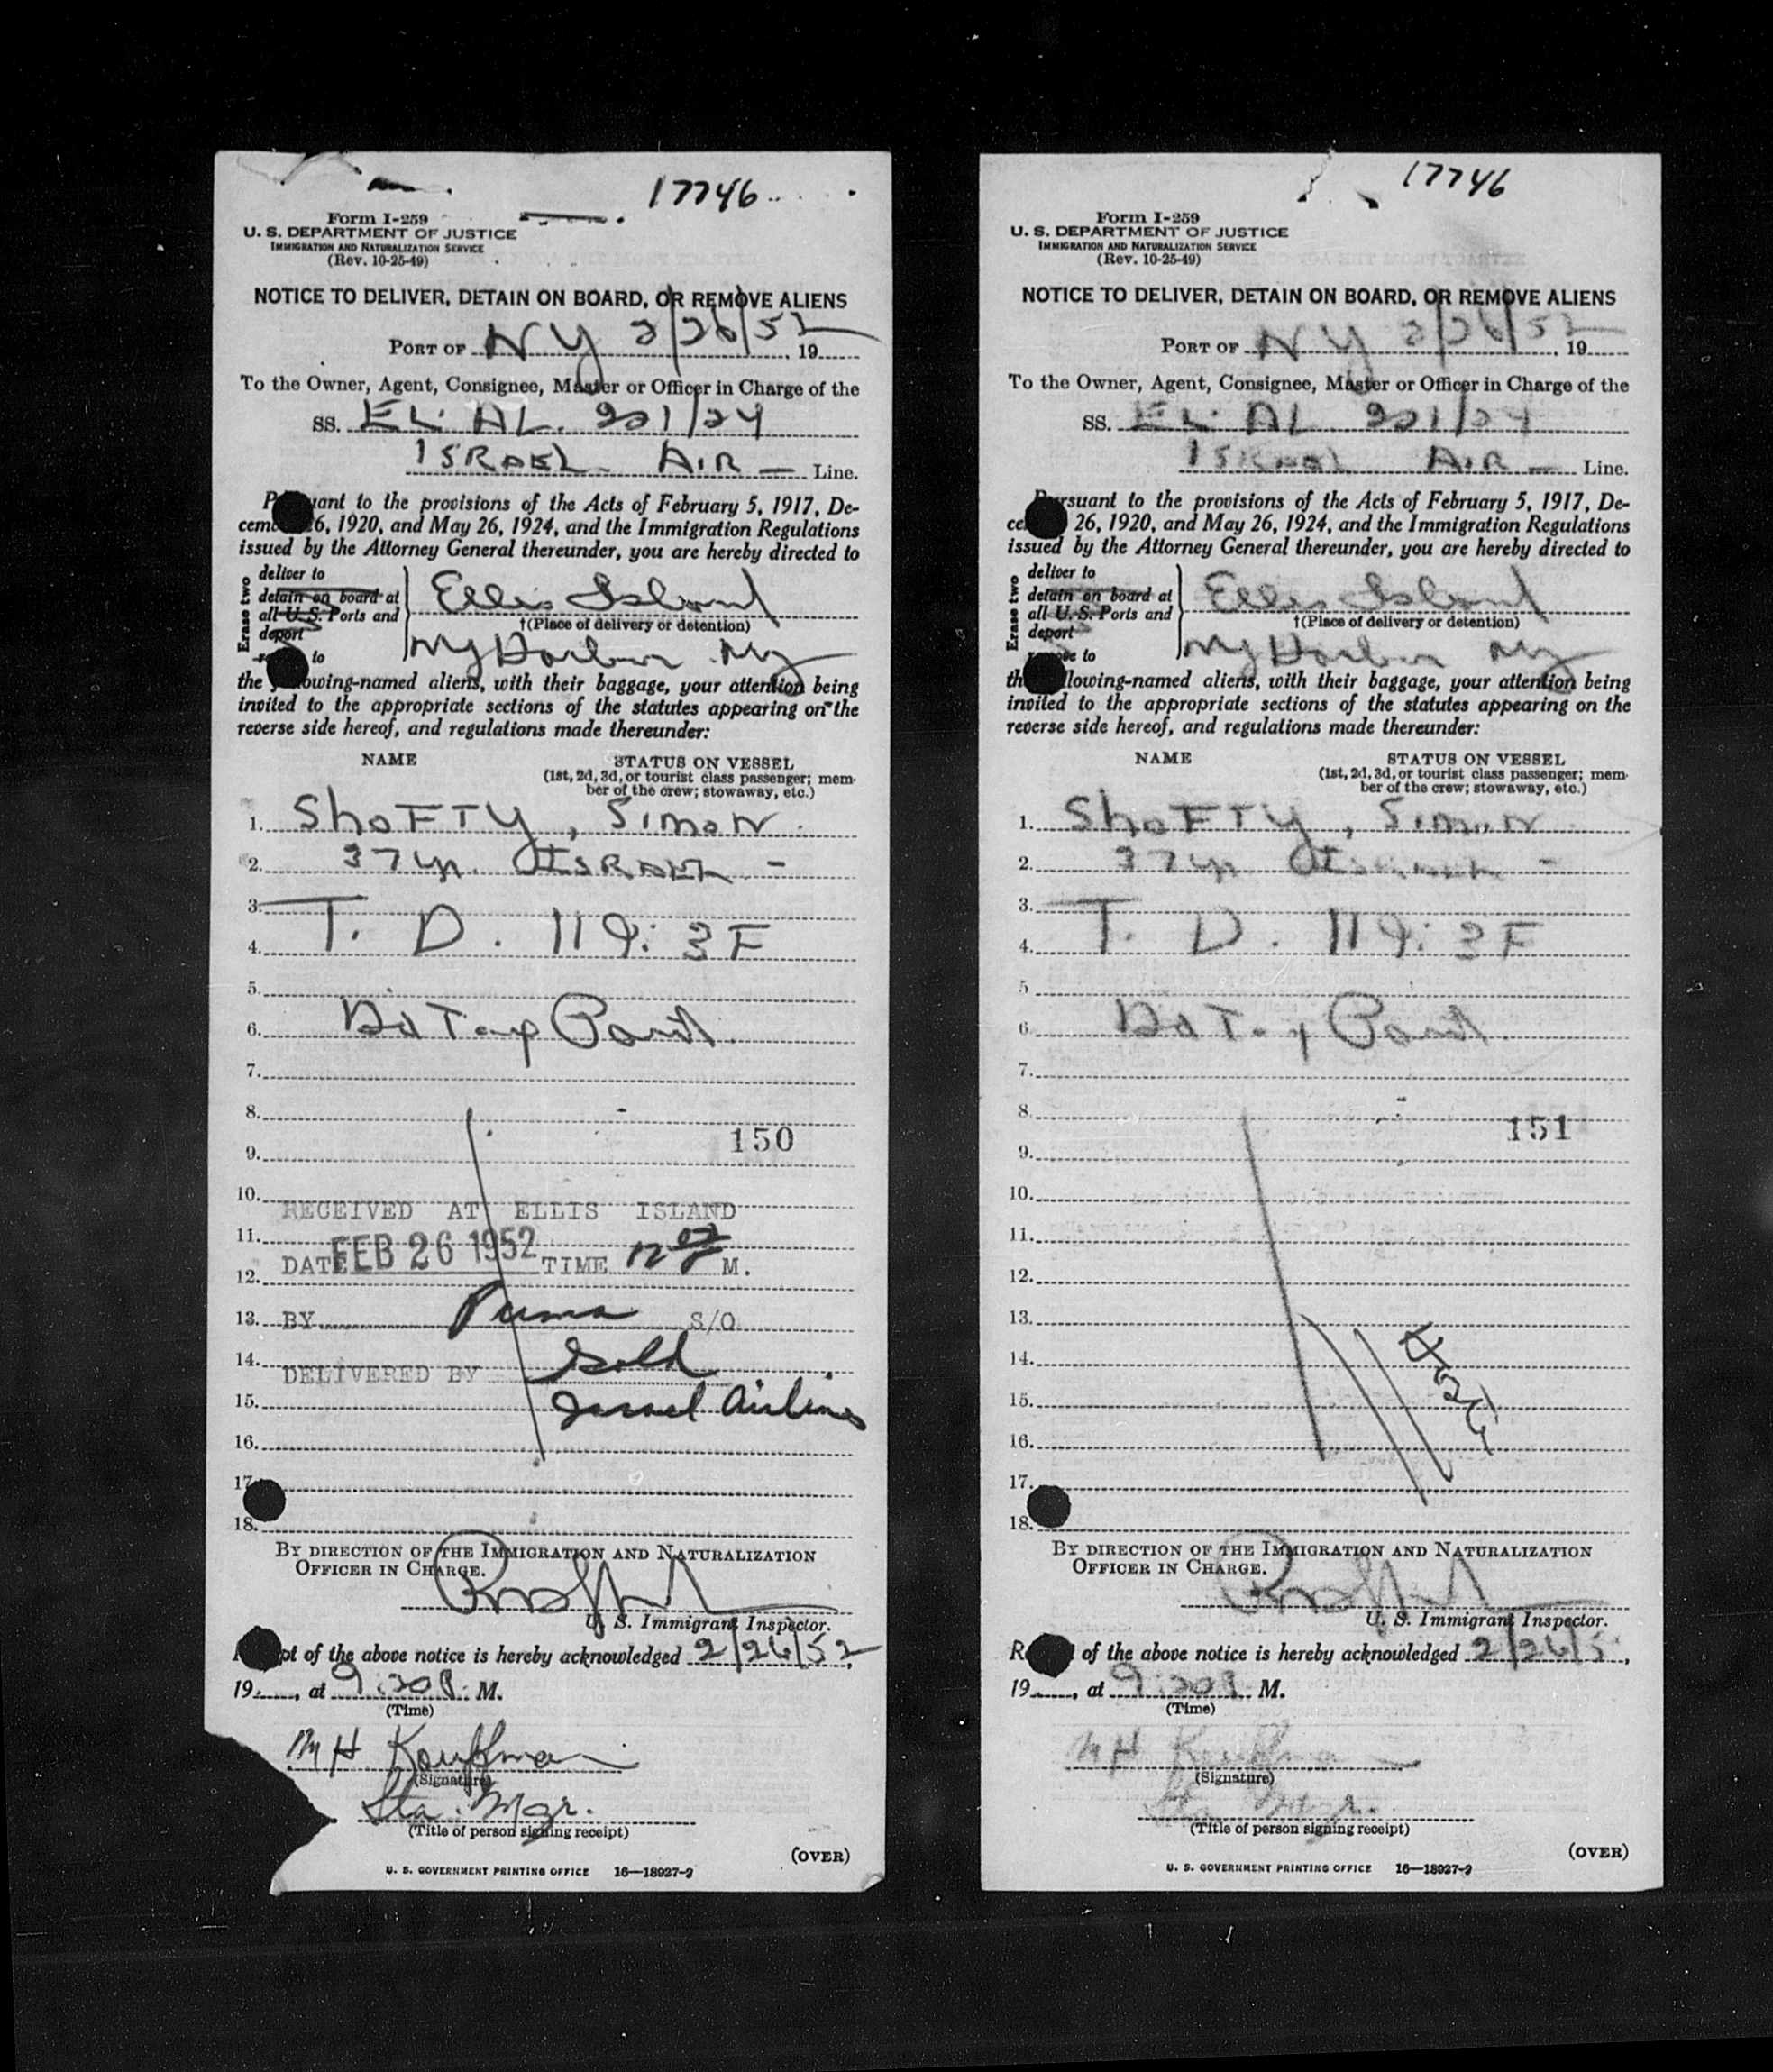 17746
Form I-259
U. S. DEPARTMENT OF JUSTICE
IMMIGRATION AND NATURALIZATION SERVICE
(Rev. 10-25-49)
NOTICE TO DELIVER, DETAIN ON BOARD, OR REMOVE ALIENS
PORT OF NY 2/26/52, 19
To the Owner, Agent, Consignee, Master or Officer in Charge of the
SS. EL. AL. 201/24
ISRAEL AIR — Line.
P uant to the provisions of the Acts of February 5, 1917, De-
cem 6, 1920, and May 26, 1924, and the Immigration Regulations
issued by the Attorney General thereunder, you are hereby directed to
Erase two
deliver to
detain on board at
all U. S. Ports and
deport
to
Ellis Island
†(Place of delivery or detention)
NY Harbor NY
the lowing-named aliens, with their baggage, your attention being
invited to the appropriate sections of the statutes appearing on the
reverse side hereof, and regulations made thereunder:
NAME STATUS ON VESSEL
(1st, 2d, 3d, or tourist class passenger; mem-
ber of the crew; stowaway, etc.)
1. ShoFTY, SimoN
2. 37 yr. ISRAEL -
3.
4. T. D. 119: 3F
5.
6.
7.
8.
150
9.
10.
RECEIVED AT ELLIS ISLAND
11.
DATE FEB 26 1952 TIME 12 M.
12.
13. BY S/O
14.
DELIVERED BY Gold
15. Israel Airlines
16.
17.
18.
BY DIRECTION OF THE IMMIGRATION AND NATURALIZATION
OFFICER IN CHARGE.
U. S. Immigrant Inspector.
pt of the above notice is hereby acknowledged 2/26/52,
19, at 9:20P. M.
(Time)
M H Kauffman
(Signature)
Sta. Mgr.
(Title of person signing receipt)
(OVER)
U. S. GOVERNMENT PRINTING OFFICE 16—18927-2
17746
Form I-259
U. S. DEPARTMENT OF JUSTICE
IMMIGRATION AND NATURALIZATION SERVICE
(Rev. 10-25-49)
NOTICE TO DELIVER, DETAIN ON BOARD, OR REMOVE ALIENS
PORT OF NY 2/26/52, 19
To the Owner, Agent, Consignee, Master or Officer in Charge of the
SS. EL. AL 201/24
ISRAEL AIR — Line.
Pursuant to the provisions of the Acts of February 5, 1917, De-
ce 26, 1920, and May 26, 1924, and the Immigration Regulations
issued by the Attorney General thereunder, you are hereby directed to
Erase two
deliver to
detain on board at
all U. S. Ports and
deport
to
Ellis Island
†(Place of delivery or detention)
NY Harbor NY
th llowing-named aliens, with their baggage, your attention being
invited to the appropriate sections of the statutes appearing on the
reverse side hereof, and regulations made thereunder:
NAME STATUS ON VESSEL
(1st, 2d, 3d, or tourist class passenger; mem-
ber of the crew; stowaway, etc.)
1. ShoFTY, SimoN
2. 37 yr. ISRAEL -
3.
4. T. D. 119: 3F
5
6.
7.
8.
151
9.
10.
11.
12.
13.
14.
15.
16.
17.
18.
BY DIRECTION OF THE IMMIGRATION AND NATURALIZATION
OFFICER IN CHARGE.
U. S. Immigrant Inspector.
R of the above notice is hereby acknowledged 2/26/5,
19, at 9:20P M.
(Time)
M H Kauffman
(Signature)
Sta Mgr.
(Title of person signing receipt)
(OVER)
U. S. GOVERNMENT PRINTING OFFICE 16—18927-2